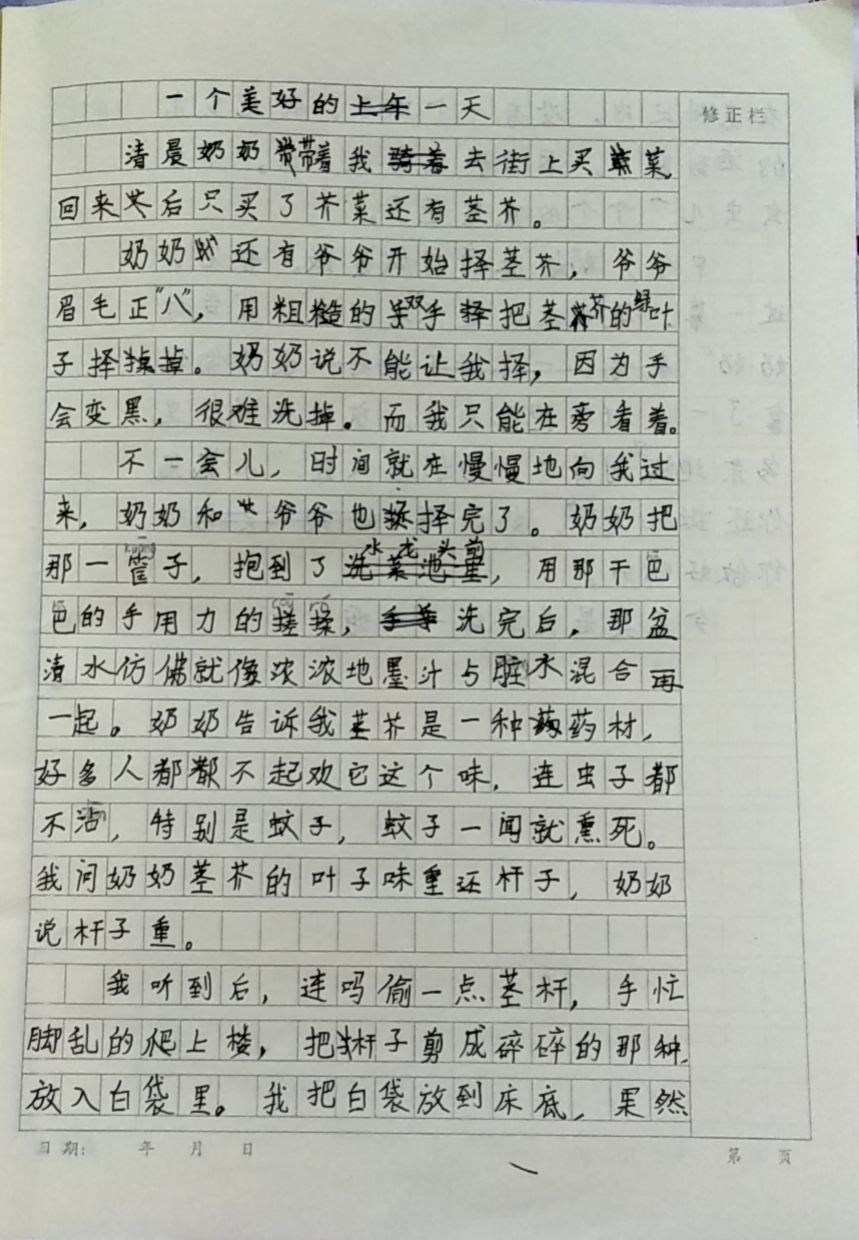 一个美好的一天
修正栏
清晨奶奶带着我去街上买菜,
回来以后只买了芥菜还有茎芥。
奶奶还有爷爷开始择茎芥，爷爷
眉毛正“八”，用粗糙的双手把茎芥的绿叶
子择掉。奶奶说不能让我择，因为手
会变黑，很难洗掉。而我只能在旁看着。
不一会儿，时间就在慢慢地向我过
来，奶奶和爷爷也择完了。奶奶把
那一筐子，抱到了水龙头前，用那干巴
巴的手用力的搓揉，洗完后，那盆
清水仿佛就像浓浓地墨汁与脏水混合再
一起。奶奶告诉我茎芥是一种药材，
好多人都不起欢它这个味，连虫子都
不沾，特别是蚊子，蚊子一闻就熏死。
我问奶奶茎芥的叶子味重还杆子，奶奶
说杆子重。
我听到后，连吗偷一点茎杆，手忙
脚乱的爬上楼，把杆子剪成碎碎的那种,
放入白袋里。我把白袋放到床底，果然
日期: 年 月 日
第 页